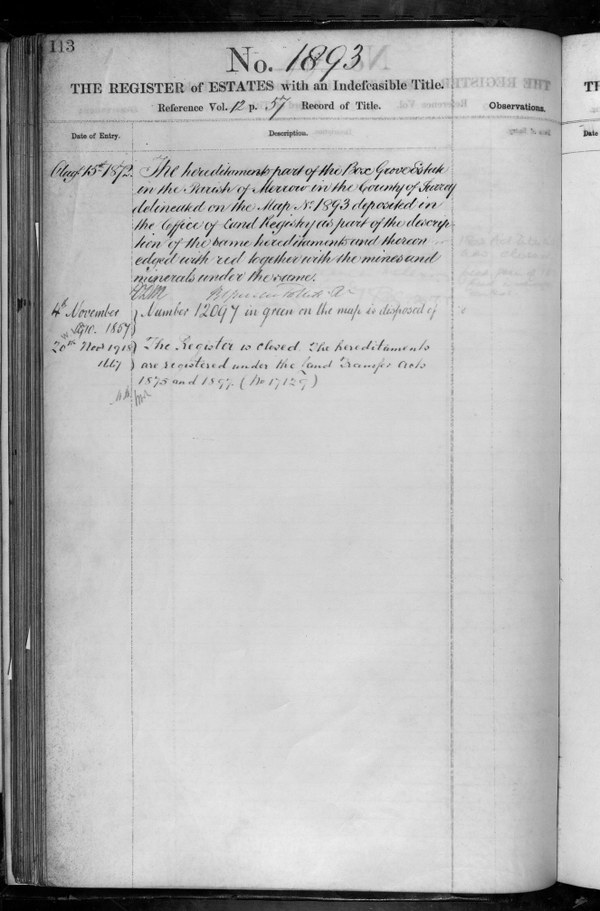 113
No. 1893
THE REGISTER of ESTATES with an Indefeasible Title.
Reference Vol. 12 p. 57 Record of Title.
Observations.
Date of Entry.
Description.
Augt 15th 1872.
The hereditaments part of the Box Grove Estate
in the Parish of Merrow in the County of Surrey
delineated on the Map No. 1893 deposited in
the Office of Land Registry as part of the descrip-
tion of the same hereditaments and thereon
edged with red together with the mines and
minerals under the same.
4th November
1867
Number 12097 in green on the map is disposed of
20th Novr 1918
1667
The Register is closed. The hereditaments
are registered under the Land Transfer Acts
1875 and 1897. (No 17129)
TH
Date